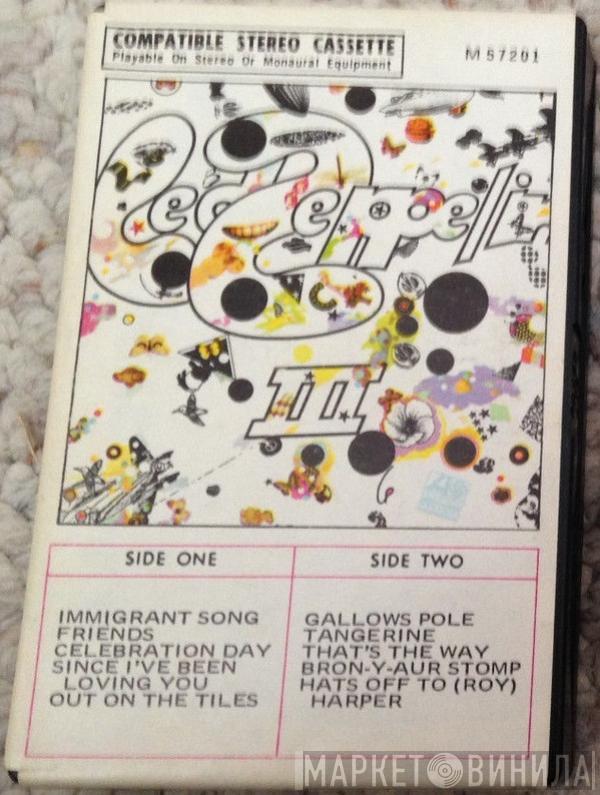 COMPATIBLE STEREO CASSETTE
Playable On Stereo Or Monaural Equipment
M 57201
Led Zeppelin
III
SIDE ONE
IMMIGRANT SONG
FRIENDS
CELEBRATION DAY
SINCE I'VE BEEN
LOVING YOU
OUT ON THE TILES
SIDE TWO
GALLOWS POLE
TANGERINE
THAT'S THE WAY
BRON-Y-AUR STOMP
HATS OFF TO (ROY)
HARPER
МАРКЕТ ВИНИЛА